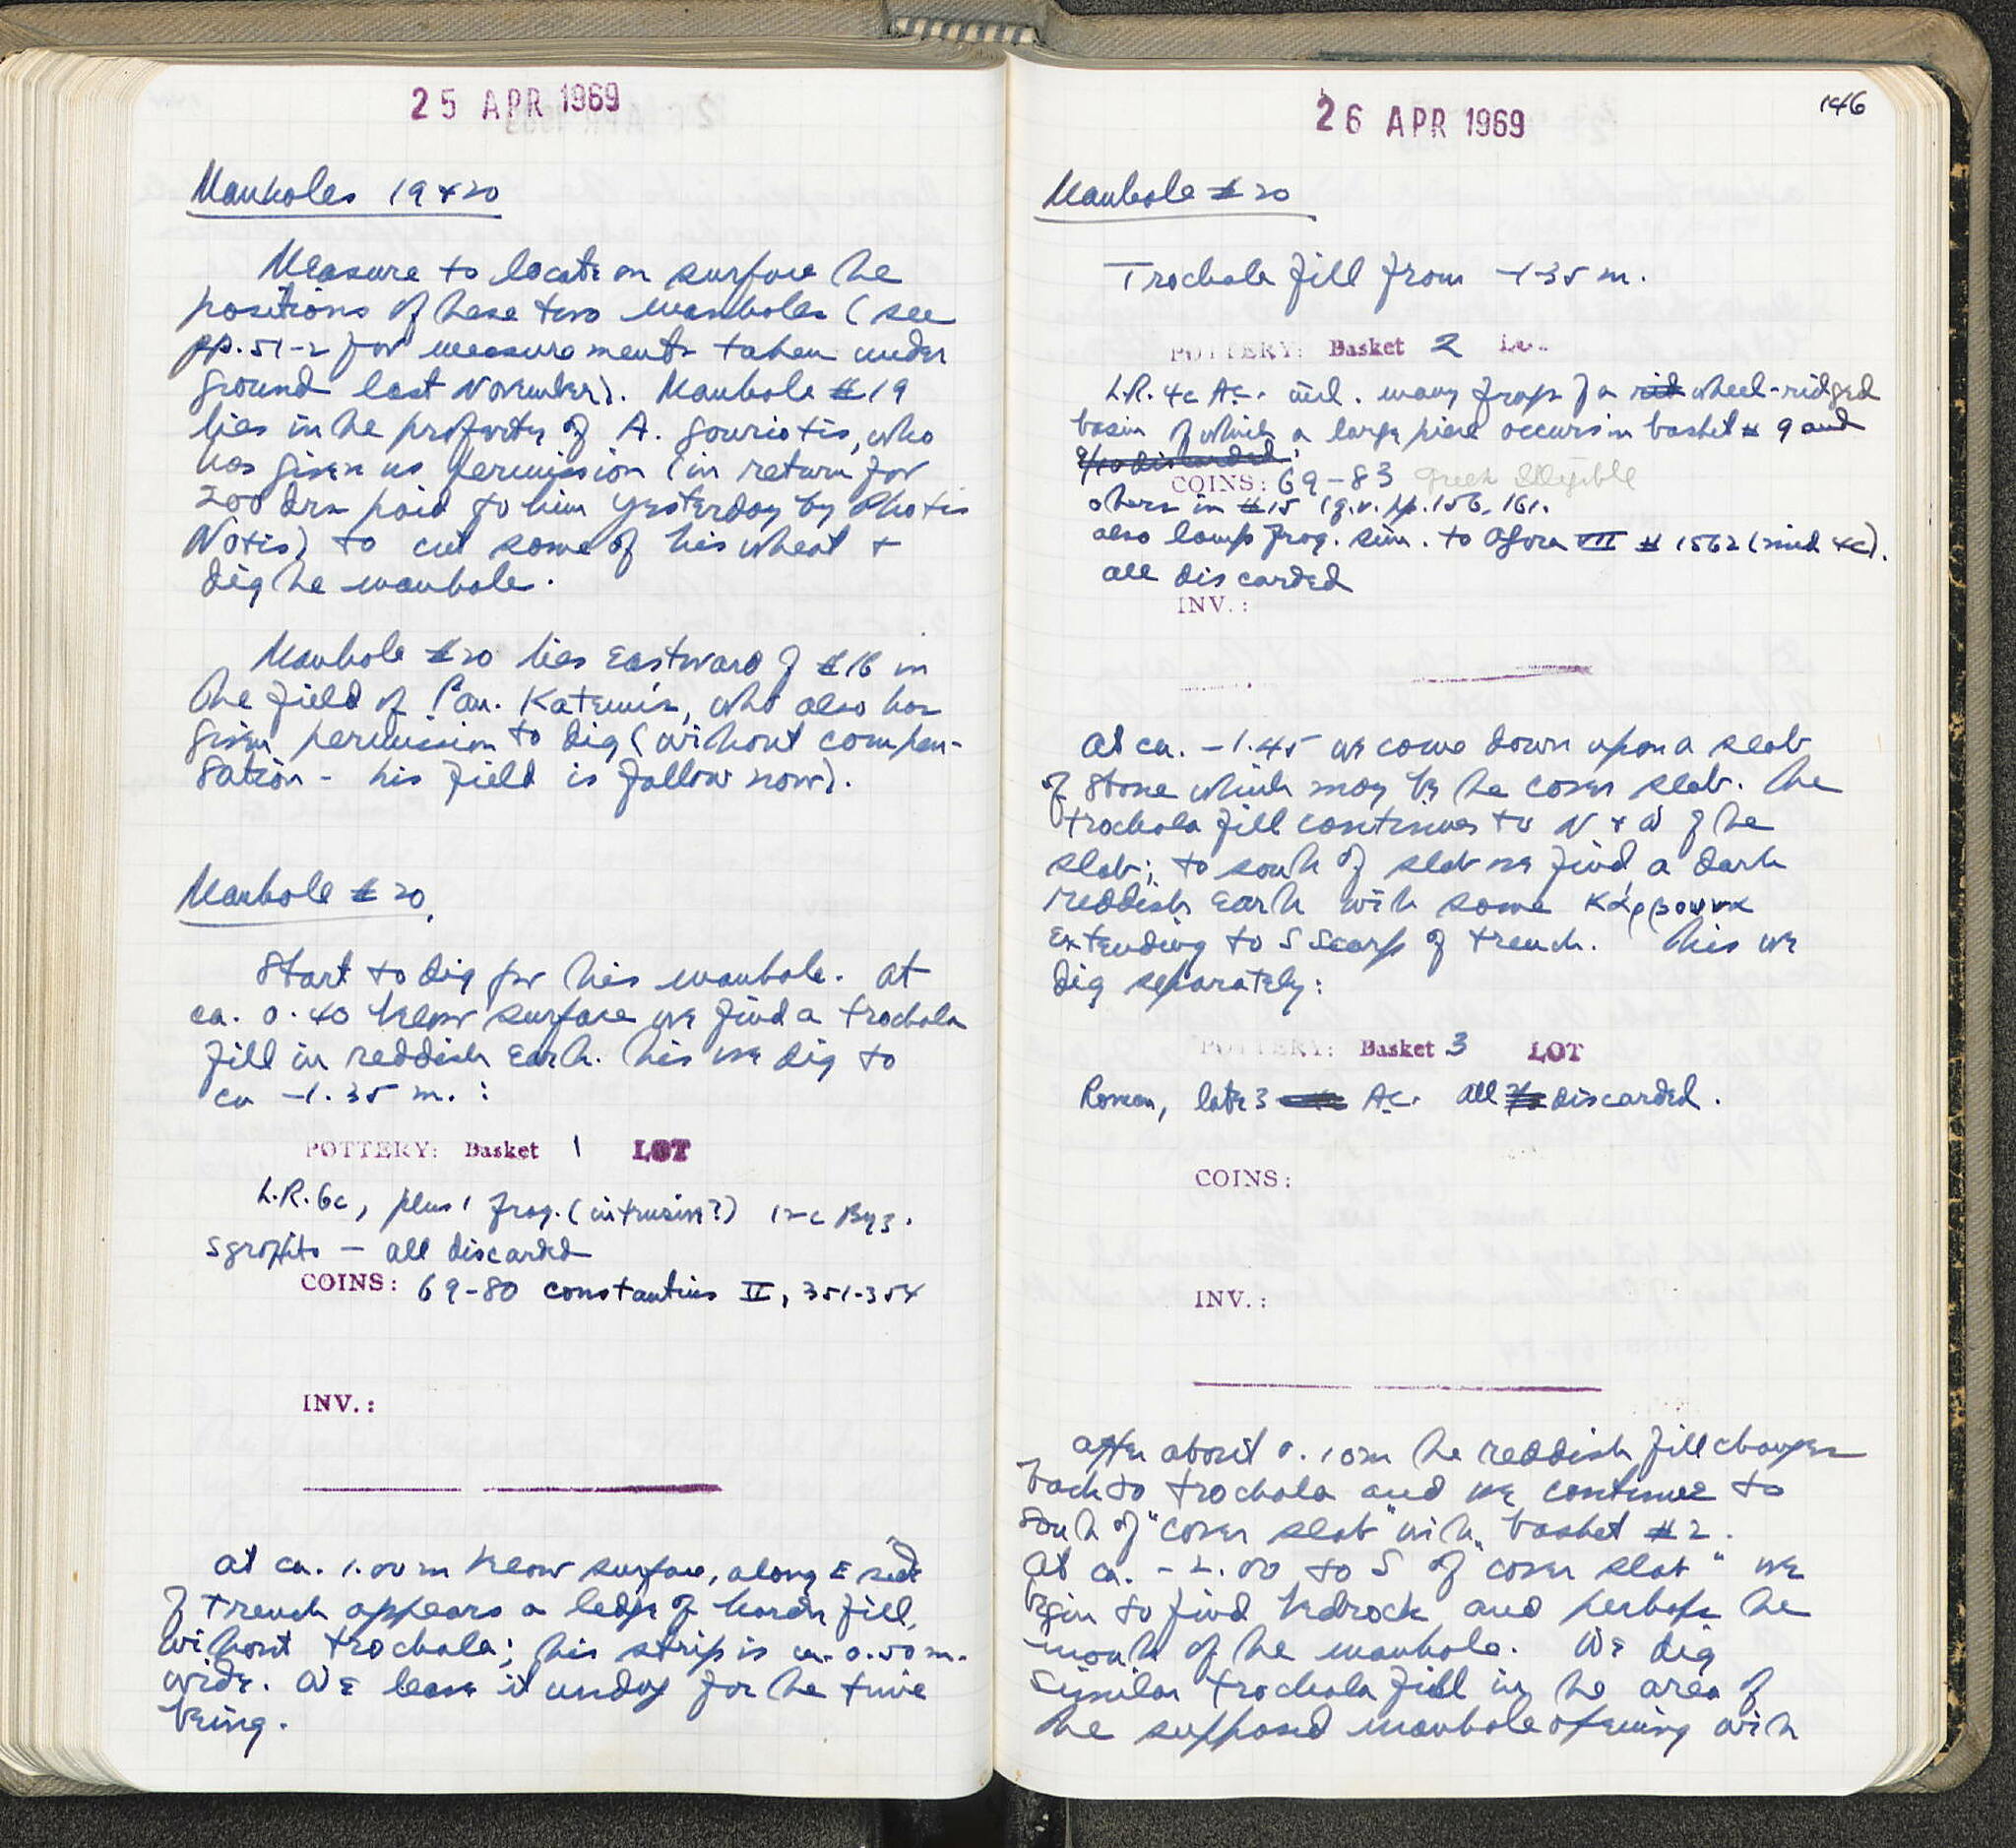 25 APR 1969
Manholes 19 + 20
Measure to locate on surface the
positions of these two manholes (see
pp. 51-2 for measurements taken under
ground last November). Manhole # 19
lies in the property of A. Gouriotis, who
has given us permission (in return for
200 drs paid to him yesterday by Photis
Notis) to cut some of his wheat +
dig the manhole.
Manhole #20 lies eastward of #18 in
the field of Pan. Katemis, who also has
given permission to dig (without compen-
sation - his field is fallow now).
Manhole # 20
Start to dig for this manhole. At
ca. 0.40 below surface we find a trochala
fill in reddish earth. This we dig to
ca -1.35 m. :
POTTERY: Basket 1 LOT
L.R. 6c, plus 1 frag. (intrusive?) 12c Byz.
sgraffito - all discarded
COINS: 69-80 Constantius II, 351-354
INV.:
At ca. 1.00 m below surface, along E side
of trench appears a ledge of harder fill,
without trochala; this strip is ca. 0.50 m.
wide. We leave it undug for the time
being.
146
26 APR 1969
Manhole # 20
Trochala fill from -1.35 m.
POTTERY: Basket 2 LOT
L.R. 4c A.C. incl. many frags of a rid wheel-ridged
basin of which a large piece occurs in basket # 9 and
discarded.
COINS: 69-83 Greek Illegible
others in #15 (q.v. pp. 156, 161.
also lamp frag. sim. to Agora VII # 1562 (mid 4c).
all discarded
INV.:
At ca. -1.45 we come down upon a slab
of stone which may be the cover slab. The
trochala fill continues to N + W of the
slab; to south of slab we find a dark
reddish earth with some κάρβουνα
extending to S scarp of trench. This we
dig separately:
POTTERY: Basket 3 LOT
Roman, late 3 A.C. All discarded.
COINS:
INV.:
After about 0.10m the reddish fill changes
back to trochala and we continue to
south of "cover slab" with basket #2.
At ca. -2.00 to S of "cover slab" we
begin to find bedrock and perhaps the
mouth of the manhole. We dig
similar trochala fill in the area of
the supposed manhole opening with